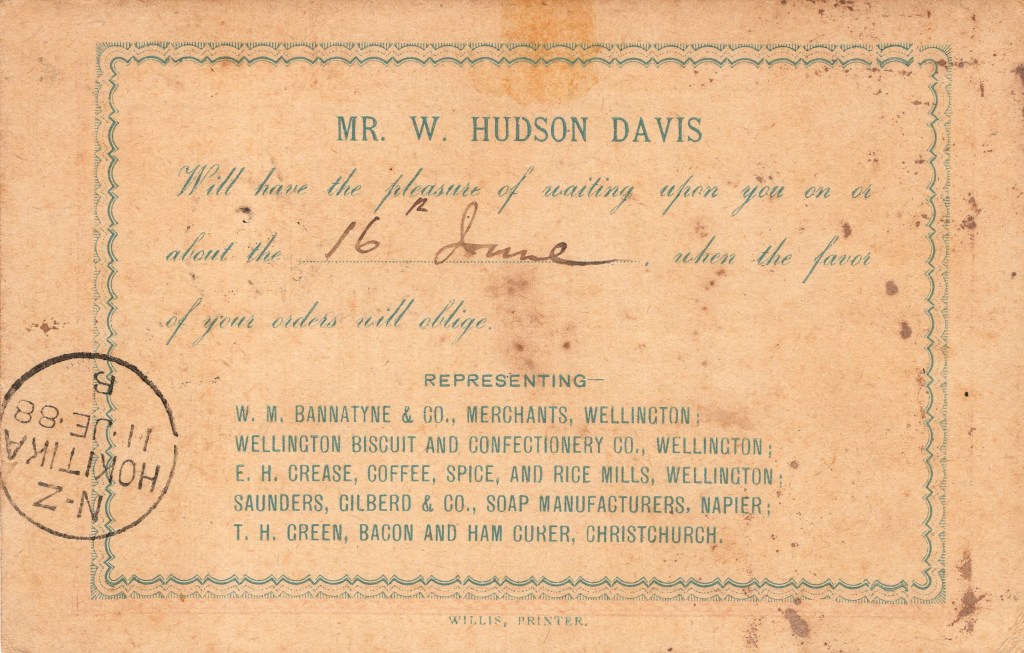 MR. W. HUDSON DAVIS
Will have the pleasure of waiting upon you on or
about the 16th June, when the favor
of your orders will oblige.
REPRESENTING—
W. M. BANNATYNE & CO., MERCHANTS, WELLINGTON;
WELLINGTON BISCUIT AND CONFECTIONERY CO., WELLINGTON;
E. H. CREASE, COFFEE, SPICE, AND RICE MILLS, WELLINGTON;
SAUNDERS, GILBERD & CO., SOAP MANUFACTURERS, NAPIER;
T. H. GREEN, BACON AND HAM CURER, CHRISTCHURCH.
WILLIS, PRINTER.
N-Z
HOKITIKA
11·JE·88
B